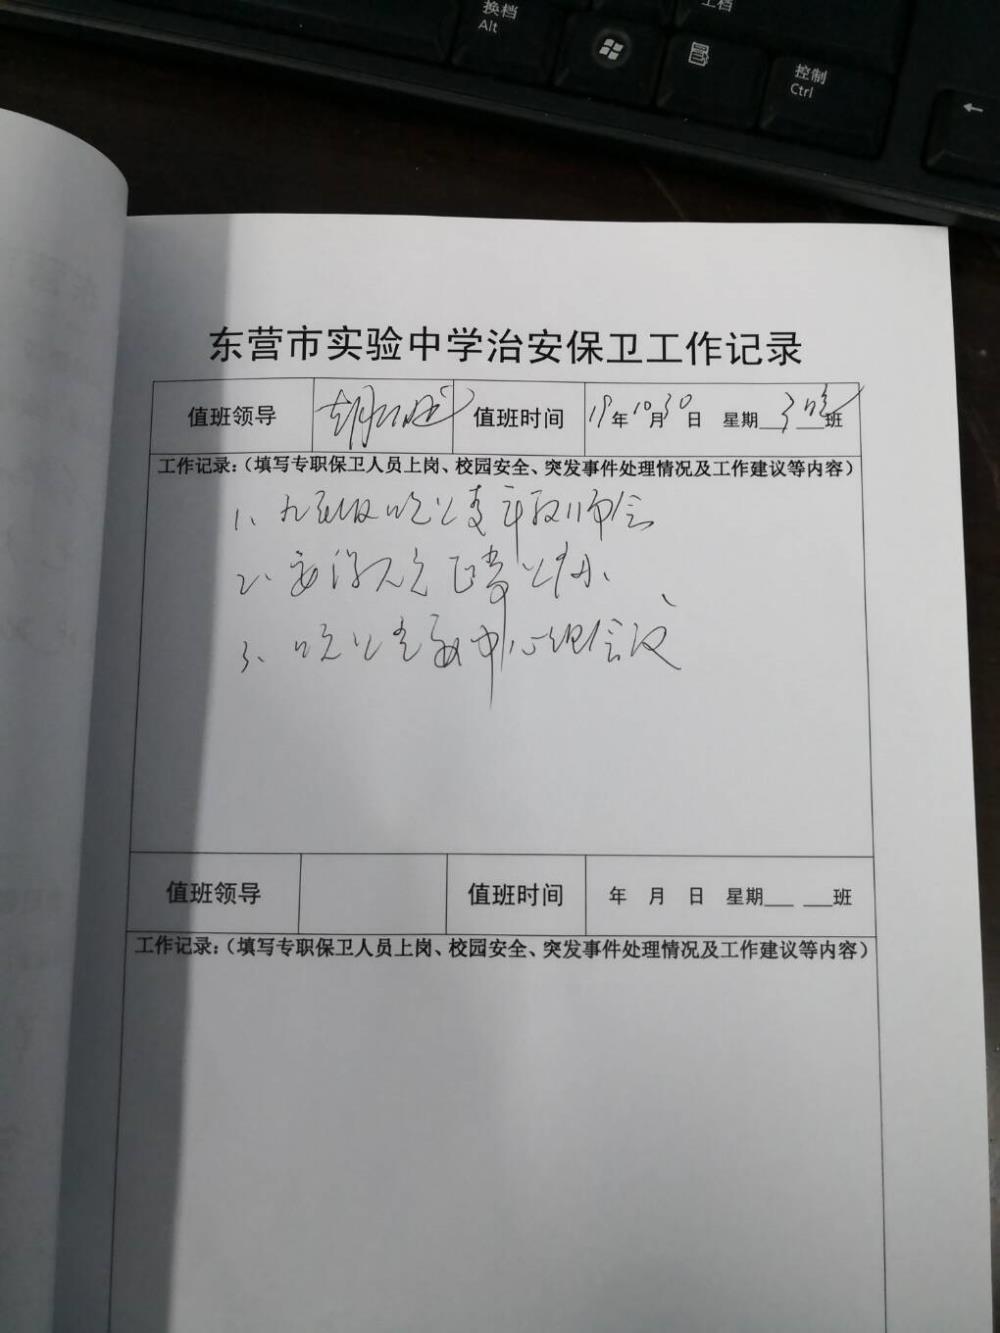 换档
Alt
工档
控制
Ctrl
←
东营市实验中学治安保卫工作记录
值班领导 胡 值班时间 19年10月30日 星期 3 晚班
工作记录：（填写专职保卫人员上岗、校园安全、突发事件处理情况及工作建议等内容）
1、九年级晚上 教师会
2、安保人员正常上岗、
3、晚上 中心组会议
值班领导 值班时间 年 月 日 星期___ ___班
工作记录：（填写专职保卫人员上岗、校园安全、突发事件处理情况及工作建议等内容）